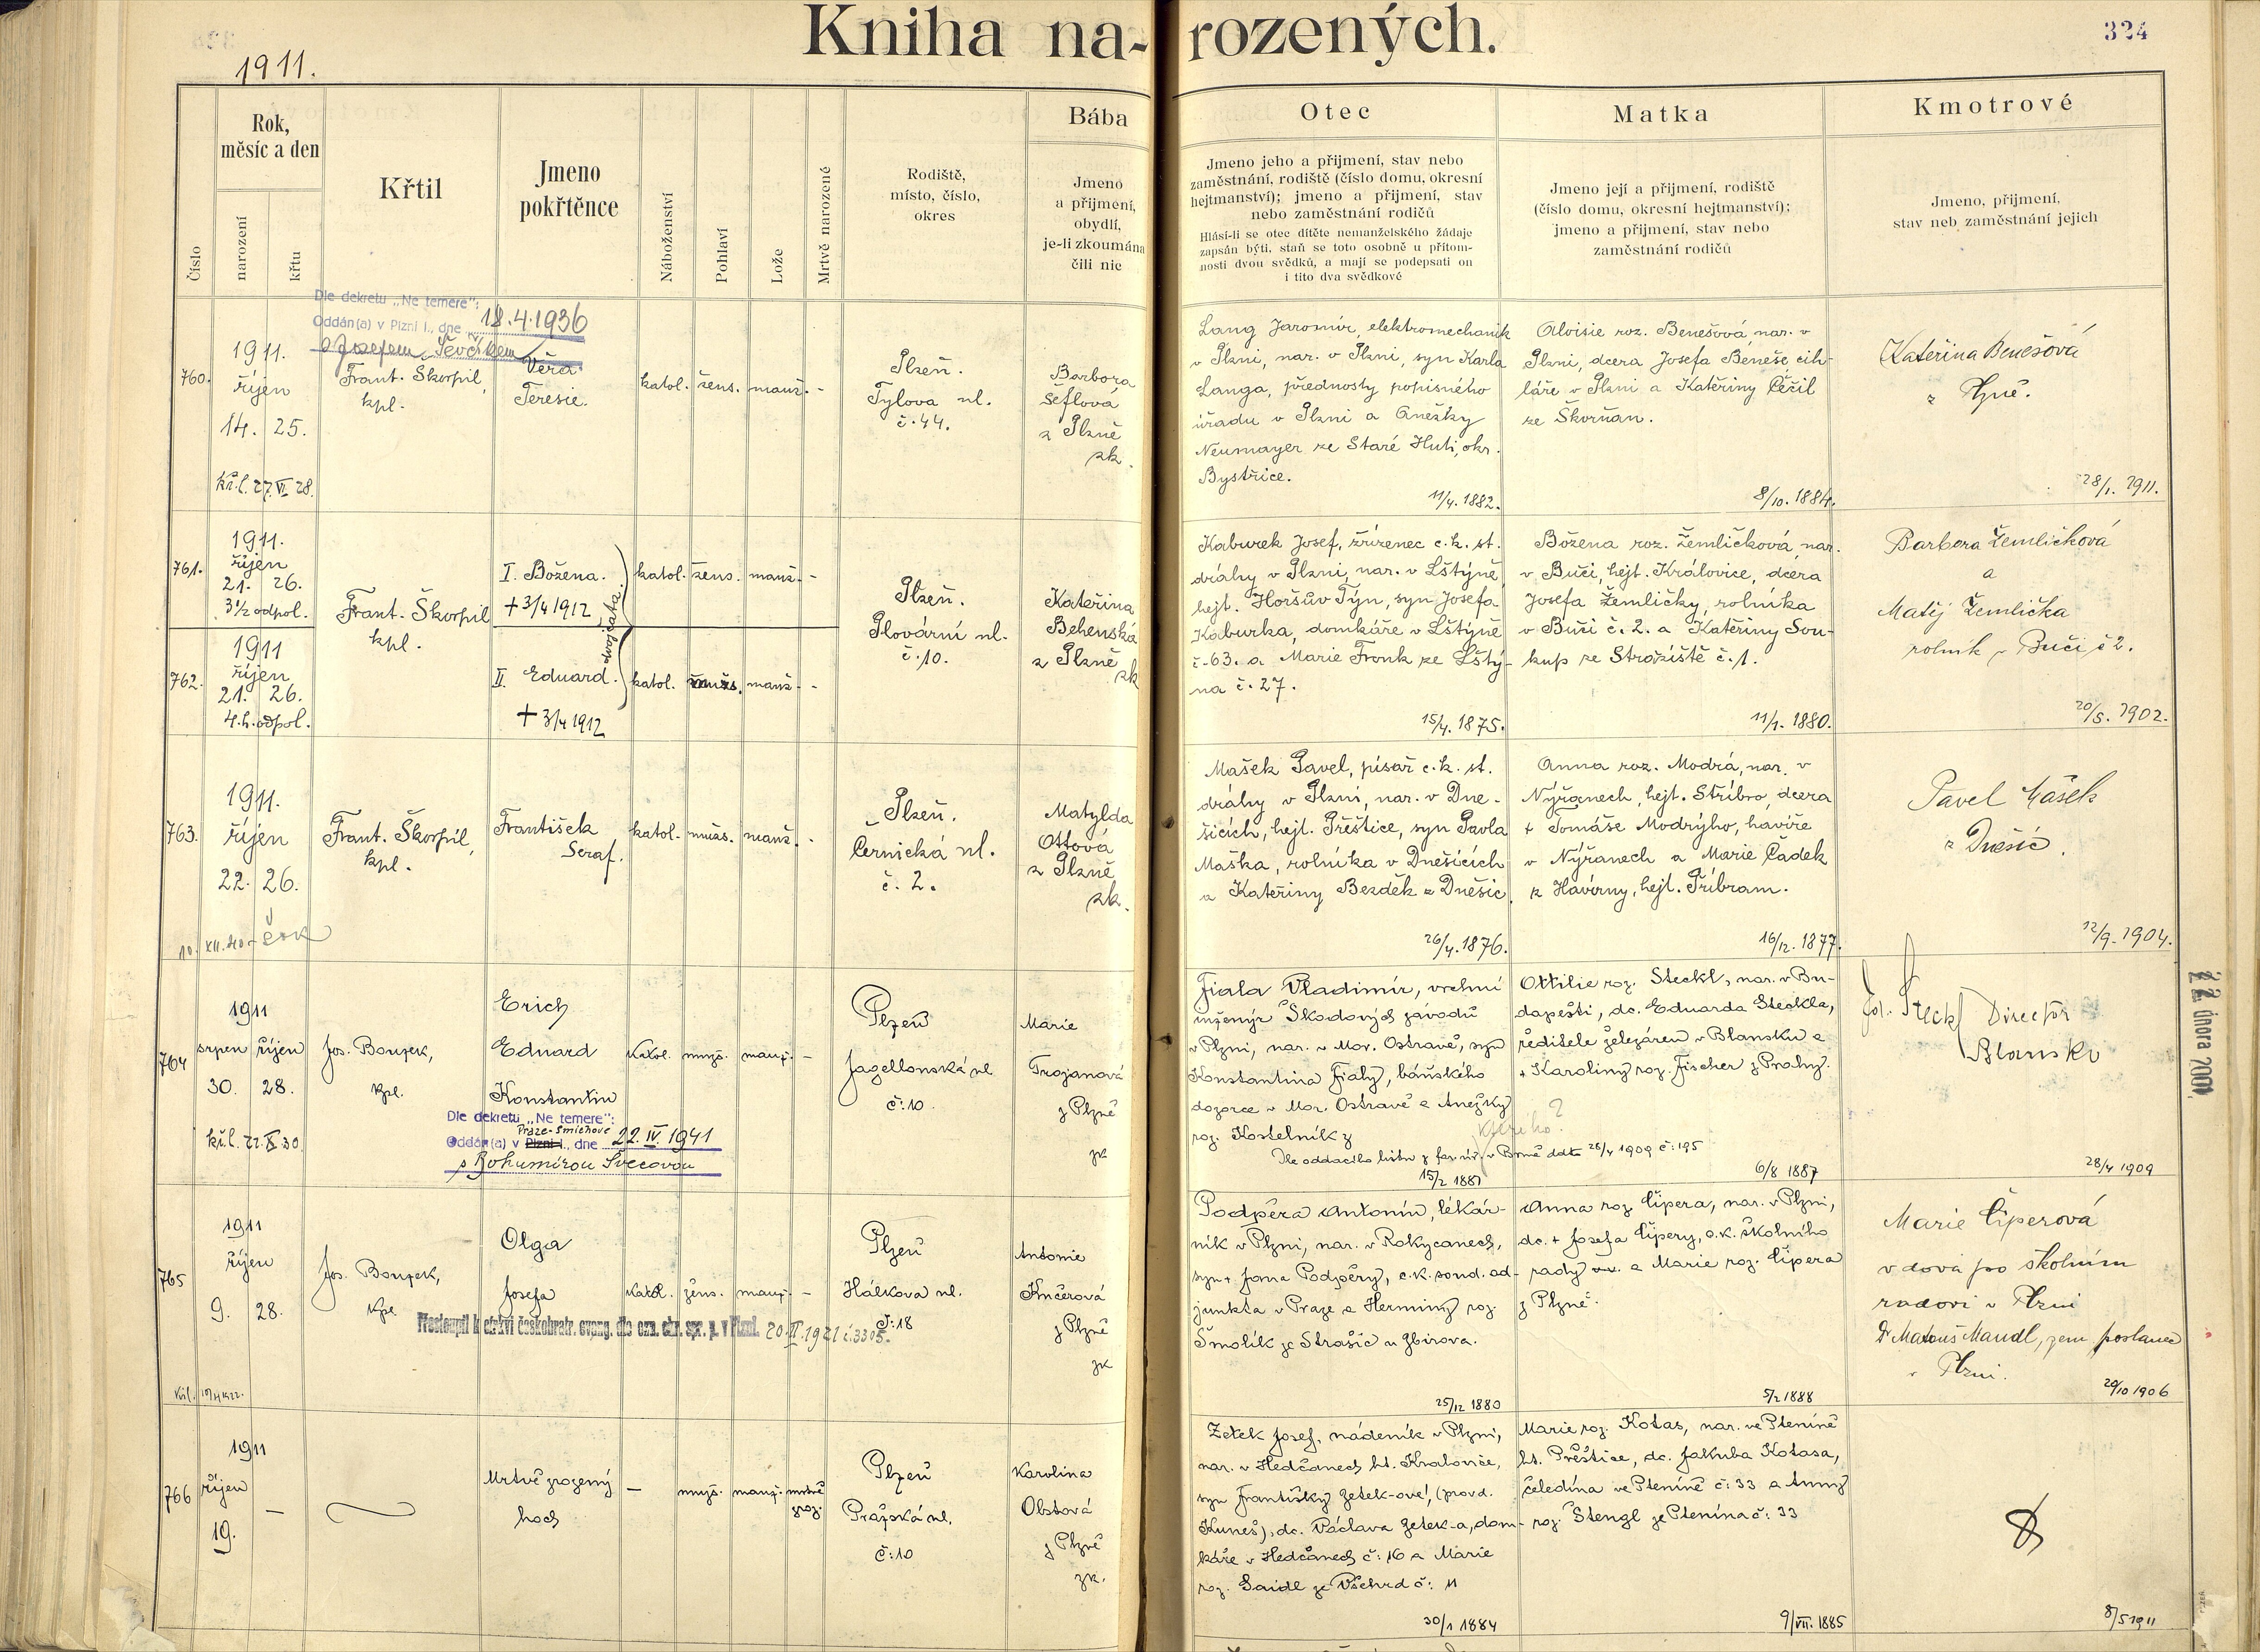 Kniha na-rozených.
324
1911.
Číslo
Rok,
měsíc a den
narození
křtu
Křtil
Jmeno
pokřtěnce
Náboženství
Pohlaví
Lože
Mrtvě narozené
Rodiště,
místo, číslo,
okres
Bába
Jmeno
a přijmení,
obydlí,
je-li zkoumána
čili nic
Otec
Jmeno jeho a přijmení, stav nebo
zaměstnání, rodiště (číslo domu, okresní
hejtmanství); jmeno a přijmení, stav
nebo zaměstnání rodičů
Hlásí-li se otec dítěte nemanželského žádaje
zapsán býti, staň se toto osobně u přítom-
nosti dvou svědků, a mají se podepsati on
i tito dva svědkové
Matka
Jmeno její a přijmení, rodiště
(číslo domu, okresní hejtmanství);
jmeno a přijmení, stav nebo
zaměstnání rodičů
Kmotrové
Jmeno, přijmení,
stav neb zaměstnání jejich
Dle dekretu „Ne temere":
Oddán(a) v Plzni I., dne 18.4.1936
s Josefem Ševčíkem
760.
1911.
říjen
14. 25.
kř.l. 27.VI 28.
Frant. Škorpil,
kpl.
Věra
Teresie.
katol.
žens.
manž.
-
Plzeň.
Tylova ul.
č. 44.
Barbora
Šeflová
z Plzně
zk.
Lang Jaromír, elektromechanik
v Plzni, nar. v Plzni, syn Karla
Langa, přednosty popisného
úřadu v Plzni a Anežky
Neumayer ze Staré Huti, okr.
Bystřice.
11/4. 1882.
Aloisie roz. Benešová, nar. v
Plzni, dcera Josefa Beneše, cih-
láře v Plzni a Kateřiny Cežil
ze Škorňan.
8/10. 1884.
Kateřina Benešová
z Plzně.
28/1. 1911.
761.
1911.
říjen
21. 26.
3 1/2 odpol.
762.
1911
říjen
21. 26.
4. h. odpol.
Frant. Škorpil
kpl.
I. Božena.
+ 3/4 1912
II. Eduard.
+ 3/4 1912
dvojčata
katol.
žens.
manž.
-
katol.
mužs.
manž.
-
Plzeň.
Plovární ul.
č. 10.
Kateřina
Behenská
z Plzně
zk
Kaburek Josef, zřízenec c. k. st.
dráhy v Plzni, nar. v Lštýně,
hejt. Horšův Týn, syn Josefa
Kaburka, domkáře v Lštýně
č. 63. a Marie Fronk ze Lštý-
na č. 27.
15/4. 1875.
Božena roz. Žemličková, nar.
v Buči, hejt. Kralovice, dcera
Josefa Žemličky, rolníka
v Buči č. 2. a Kateřiny Sou-
kup ze Strážiště č. 1.
11/1. 1880.
Barbora Žemličková
a
Matěj Žemlička
rolník v Buči č 2.
20/5. 1902.
763.
1911.
říjen
22. 26.
10. XII. 40
Frant. Škorpil,
kpl.
František
Seraf.
katol.
mužs.
manž.
-
Plzeň.
Černická ul.
č. 2.
Matylda
Ottová
z Plzně
zk.
Mašek Pavel, písař c. k. st.
dráhy v Plzni, nar. v Dne-
šicích, hejt. Přeštice, syn Pavla
Maška, rolníka v Dnešicích
a Kateřiny Bezděk z Dnešic.
26/4. 1876.
Anna roz. Modrá, nar. v
Nýřanech, hejt. Stříbro, dcera
+ Tomáše Modrýho, havíře
v Nýřanech a Marie Čadek
z Havírny, hejt. Příbram.
16/12. 1877.
Pavel Mášek
z Dnešic.
12/9. 1904.
764
1911
srpen říjen
30. 28.
Jos. Bouzek,
kpl.
Erich
Eduard
Konstantin
Dle dekretu „Ne temere":
Praze-Smíchově
Oddán(a) v Plzni I., dne 22. IV. 1941
s Bohumírou Švecovou
katol.
mužs.
manž.
-
Plzeň
Jagellonská ul.
č: 10.
Marie
Trojanová
z Plzně
zk
Fiala Vladimír, vrchní
inženýr Škodových závodů
v Plzni, nar. v Mor. Ostravě, syn
Konstantina Fialy, báňského
dozorce v Mor. Ostravě a Anežky
roz. Kostelník z
15/2 1881
Ottilie roz. Steckl, nar. v Bu-
dapešti, dc. Eduarda Steckla,
ředitele železáren v Blansku a
+ Karoliny roz. Fischer z Prahy.
6/8 1887
Jos. Steckl Director
Blansko
28/4 1909
22 února 2001
765
1911
říjen
9. 28.
Jos. Bouzek,
kpl.
Olga
Josefa
katol.
žens.
manž.
-
Plzeň
Hálkova ul.
č: 18
20. II. 1921 č. 3305.
Antonie
Kučerová
z Plzně
zk
Podpěra Antonín, lékár-
ník v Plzni, nar. v Rokycanech,
syn + Jana Podpěry, c. k. soud. ad-
junkta v Praze a Herminy roz.
Smolík ze Strašic u Zbirova.
25/12 1880
Anna roz. Čipera, nar. v Plzni,
dc. + Josefa Čipery, c. k. školního
rady a Marie roz. Čipera
z Plzně.
5/2 1888
Marie Čiperová
vdova po školním
radovi v Plzni
Dr Matouš Mandl, zem. poslanec
v Plzni.
29/10 1906
766
1911
říjen
19.
-
Mrtvě zrozený
hoch
-
mužs.
manž.
mrtvě
zroz.
Plzeň
Pražská ul.
č: 10
Karolina
Obstová
z Plzně
zk.
Zetek Josef, nádeník v Plzni,
nar. v Hedčanech ht. Kralovice,
syn Františky Zetek-ové, (provd.
Kuneš), dc. Václava Zetek-a, dom-
káře v Hedčanech č: 16 a Marie
roz. Saidl ze Všehrd č: 11
30/1 1884
Marie roz. Kotas, nar. ve Ptenině
ht. Přeštice, dc. Jakuba Kotasa,
čeledína ve Ptenině č: 33 a Anny
roz. Stengl ze Ptenína č: 33
9/VII. 1885
8/5 1911